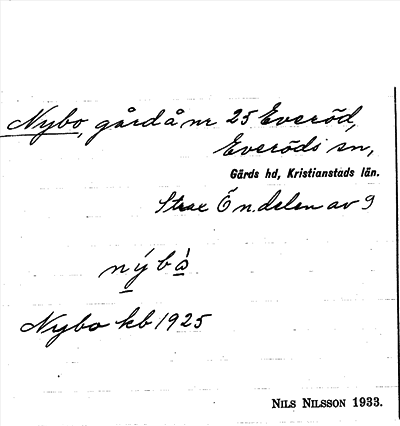 Nybo, gård å nr 25 Everöd,
Everöds sn,
Gärds hd, Kristianstads län.
Strax Ö n. delen av 9
nýbò
Nybo kb 1925
NILS NILSSON 1933.